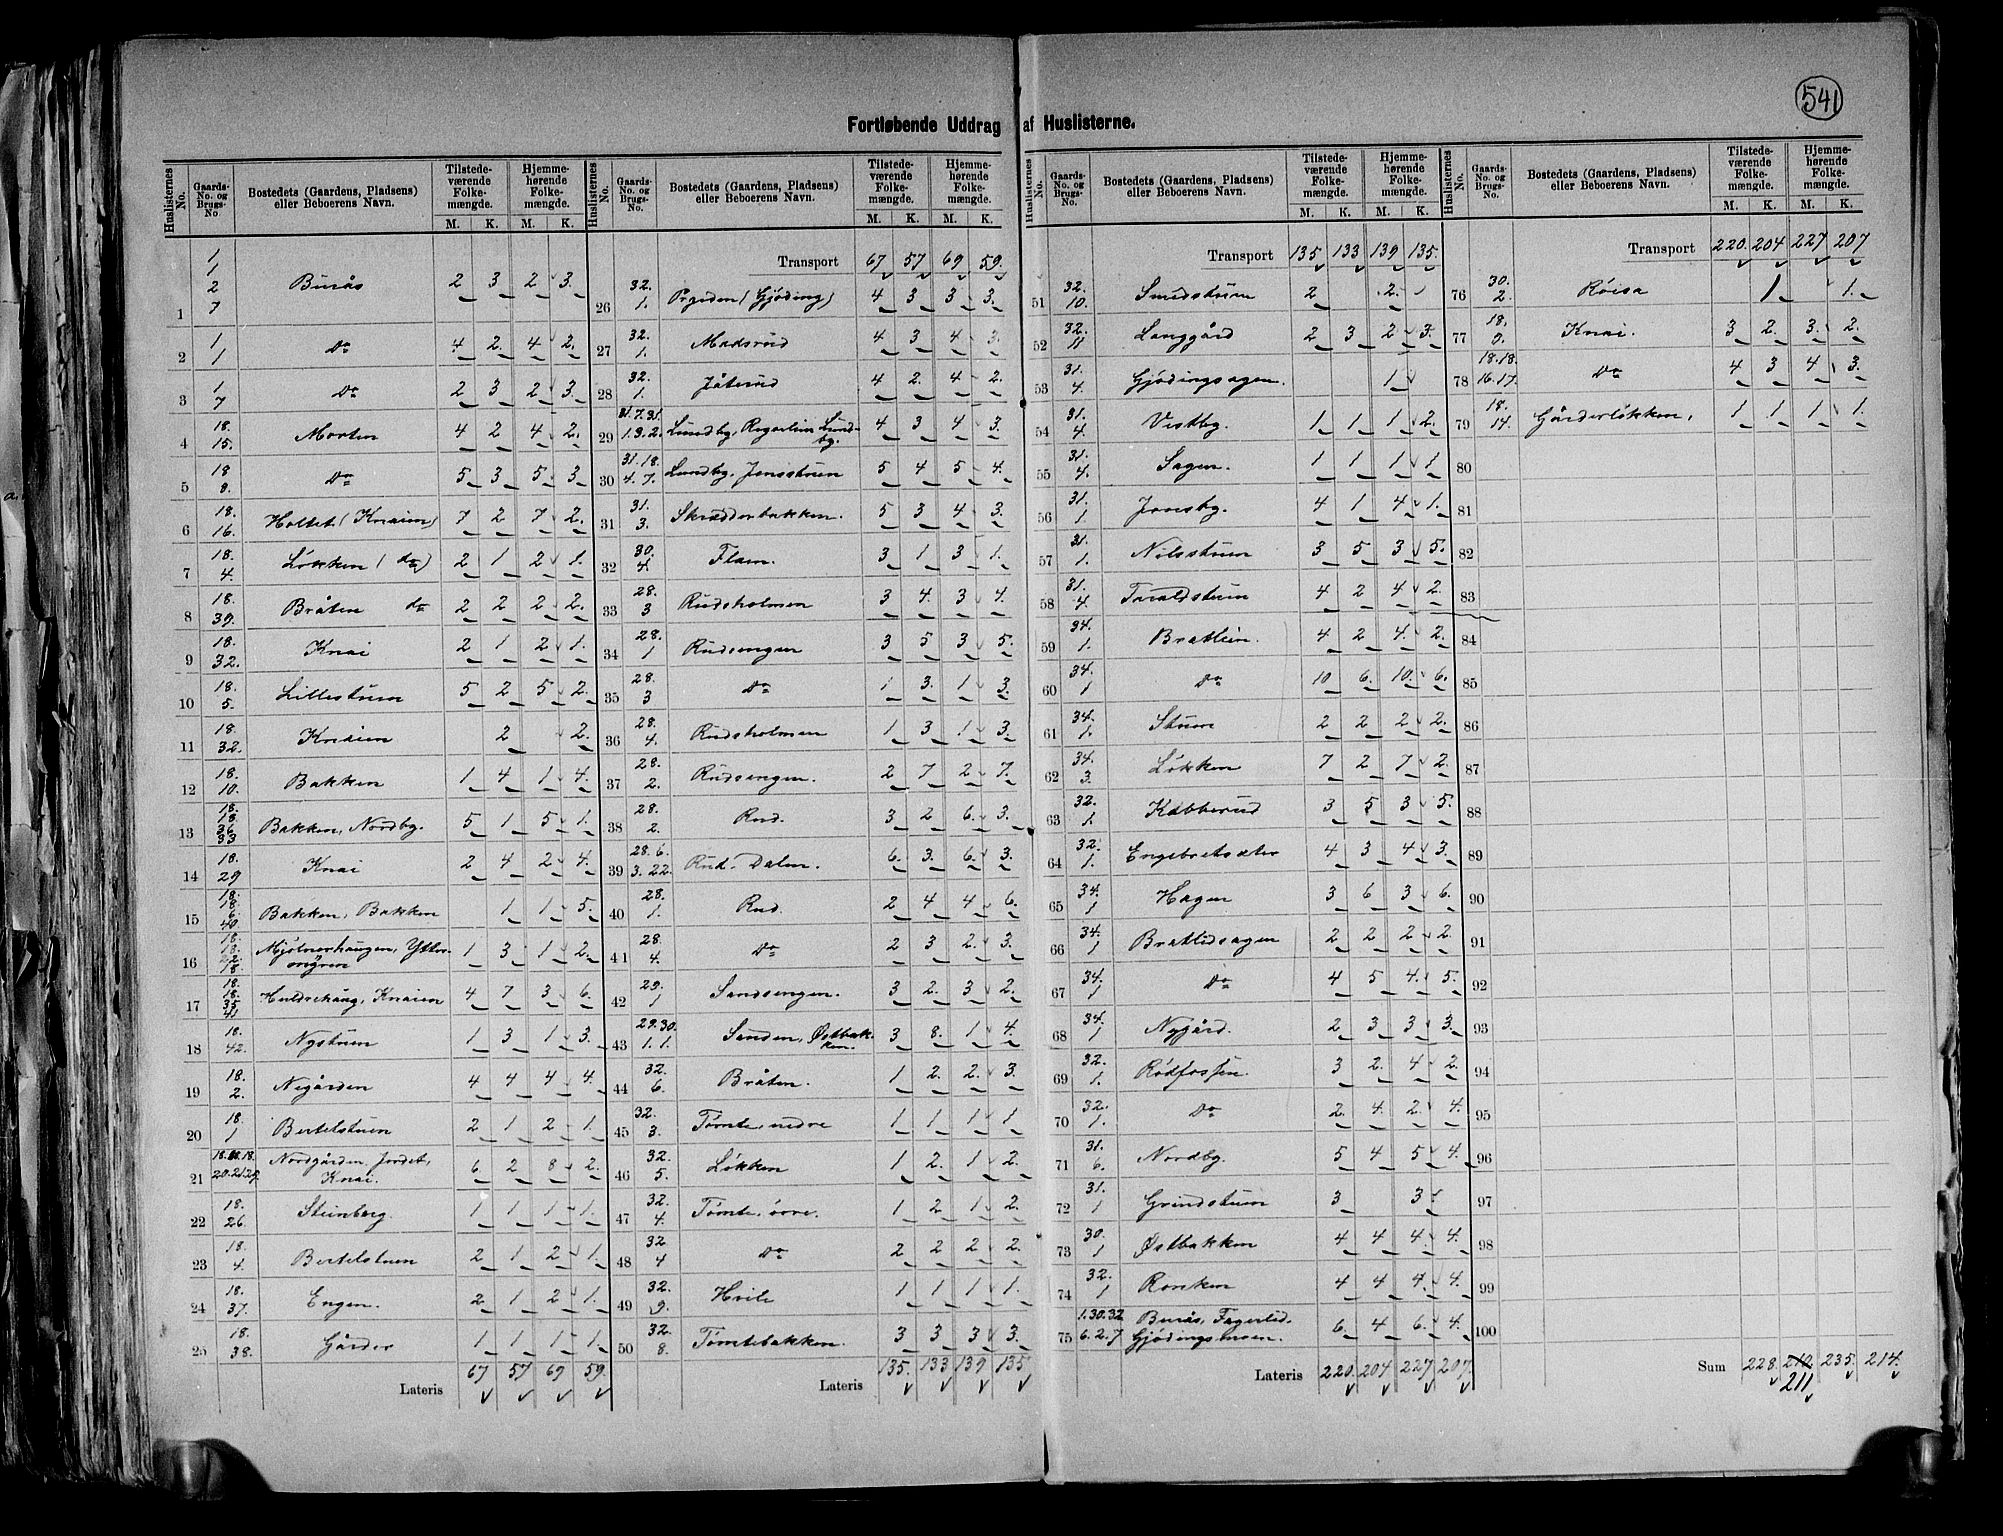 541
Fortløbende Uddrag af Huslisterne.
Huslisternes No. | Gaards-No. og Brugs-No. | Bostedets (Gaardens, Pladsens) eller Beboerens Navn. | Tilstedeværende Folkemængde. M. K. | Hjemmehørende Folkemængde. M. K.
1 | 1 1 2 7 | Burås | 2 3 2 3.
2 | 1 1 | Do | 4 2. 4 2.
3 | 1 7 | Do | 2 3 2 3.
4 | 18. 15. | Morten | 4 2 4 2.
5 | 18 8. | Do | 5 3 5 3.
6 | 18. 16. | Holtet (Knaien) | 7 2 7 2.
7 | 18. 4. | Løkken (do) | 2 1 2 1.
8 | 18. 39. | Bråten do | 2 2 2 2.
9 | 18. 32. | Knai | 2 1 2 1.
10 | 18. 5. | Lillestuen | 5 2 5 2.
11 | 18. 32. | Knaien | 2 2.
12 | 18. 10. | Bakken | 1 4 1 4.
13 | 18. 18. 36 33 | Bakken, Nordby. | 5 1 5 1.
14 | 18. 29 | Knai | 2 4 2 4.
15 | 18. 18 6. 40 | Bakken, Bakken | 1 1 5.
16 | 18. 18. 22. 18. | Mjølnerhaugen, Ytterengen | 1 3 1 2.
17 | 18. 18. 35 41 | Huldrehaug, Knaien | 4 7 3 6.
18 | 18. 42. | Nystuen | 1 3 1 3.
19 | 18. 2. | Negården | 4 4 4 4.
20 | 18. 1 | Bertelstuen | 2 1 2 1.
21 | 18.18.18. 20.21.27. | Nordgården, Jordet, Knai. | 6. 2 8 2.
22 | 18. 26 | Steinberg. | 1 1 1 1.
23 | 18. 4. | Bertelstuen | 2 1 2 1.
24 | 18. 37. | Engen. | 2 1 2 1.
25 | 18. 38. | Gårder | 1 1 1 1.
Lateris 67 57 69 59.
Huslisternes No. | Gaards-No. og Brugs-No. | Bostedets (Gaardens, Pladsens) eller Beboerens Navn. | Tilstedeværende Folkemængde. M. K. | Hjemmehørende Folkemængde. M. K.
Transport 67 57 69 59.
26 | 32. 1. | (Gjøding) | 4 3 3 3.
27 | 32. 1. | Madsrud | 4 3 4 3.
28 | 32. 1. | Jåterud | 4 2. 4 2.
29 | 31.7.31. 1.3.2. | Lundby, Lundby. | 4 3 4 3.
30 | 31.18. 4.7. | Lundby, Jensstuen | 5 4 5 4.
31 | 31. 3. | Skrædderbakken. | 5 3 4 3.
32 | 30. 4. | Flaen. | 3 1 3 1.
33 | 28. 3 | Rudsholmen | 3 4. 3 4.
34 | 28. 1 | Rudsengen | 3 5 3 5.
35 | 28. 3 | Do | 1 3. 1 3.
36 | 28. 4. | Rudsholmen | 1 3. 1 3.
37 | 28. 2. | Rudsengen. | 2 7 2 7.
38 | 28. 2. | Rud. | 3 2 6. 3.
39 | 28.6. 3.22. | Rud. Dalen. | 6. 3. 6. 3.
40 | 28. 1. | Rud. | 2 4 4 6.
41 | 28. 4. | Do | 2 3 2. 3.
42 | 29. 1 | Sandsengen. | 3 2. 3 2.
43 | 29.30. 1.1. | Sanden, Østbakken. | 3 8. 1 4.
44 | 32. 6. | Bråten. | 1 2. 2. 3.
45 | 32. 3. | Tømte, nedre | 1 1 1 1.
46 | 32. 5. | Løkken | 1 2. 1 2.
47 | 32. 4. | Tømte, øvre. | 1 2 1 2.
48 | 32. 4 | Do | 2 2 2 2.
49 | 32. 9. | Hvile | 1 1 1 1.
50 | 32. 8. | Tømtebakken. | 3 3 3 3.
Lateris 135. 133 139 135.
Huslisternes No. | Gaards-No. og Brugs-No. | Bostedets (Gaardens, Pladsens) eller Beboerens Navn. | Tilstedeværende Folkemængde. M. K. | Hjemmehørende Folkemængde. M. K.
Transport 135 133 139 135.
51 | 32. 10. | Smedstuen | 2 2.
52 | 32. 11 | Langgård | 2 3 2 3.
53 | 31. 4. | Gjødingsagen. | 1
54 | 31. 4. | Vestby. | 1 1 1 2.
55 | 31. 4. | Sagen. | 1 1 1 1.
56 | 31. 1 | Jonsby. | 4 1 4 1.
57 | 31. 1. | Nilsstuen | 3 5 3 5.
58 | 31. 4. | Taraldstuen | 4 2 4 2.
59 | 34. 1. | Bratlien. | 4 2 4. 2.
60 | 34. 1 | Do | 10 6. 10. 6.
61 | 34. 1. | Stuen | 2 2 2 2.
62 | 34. 3. | Løkken | 7 2 7 2.
63 | 32. 1. | Kabberud | 3 5 3 5.
64 | 32. 1. | Engebretsæter | 4 3 4 3.
65 | 34. 1 | Hagen | 3 6 3 6.
66 | 34. 1 | Bratlidsagen | 2 2 2 2.
67 | 34. 1 | Do | 4 5 4. 5.
68 | 34. 1 | Nygård. | 2 3 3 3.
69 | 32. 1. | Rødfossen. | 3 2. 4 2.
70 | 32. 1. | Do | 2. 4. 2. 4.
71 | 31. 6. | Nordby. | 5 4 5 4.
72 | 31. 1 | Grindstuen | 3 3
73 | 30. 1 | Østbakken | 4 4 4. 4.
74 | 32. 1 | Ronken | 4 4 4. 4.
75 | 1.30.32 6.2.7 | Burås, Fagerlid. Gjødingsmoen. | 6. 4 6. 4.
Lateris 220. 204 227. 207.
Huslisternes No. | Gaards-No. og Brugs-No. | Bostedets (Gaardens, Pladsens) eller Beboerens Navn. | Tilstedeværende Folkemængde. M. K. | Hjemmehørende Folkemængde. M. K.
Transport 220. 204 227 207
76 | 30. 2. | Røisa | 1 1.
77 | 18. 9. | Knai. | 3 2. 3. 2.
78 | 18.18. 16.17. | Do | 4 3 4 3.
79 | 18. 14. | Gårderløkken, | 1 1 1 1.
80
81
82
83
84
85
86
87
88
89
90
91
92
93
94
95
96
97
98
99
100
Sum 228. 212 235. 214.
211